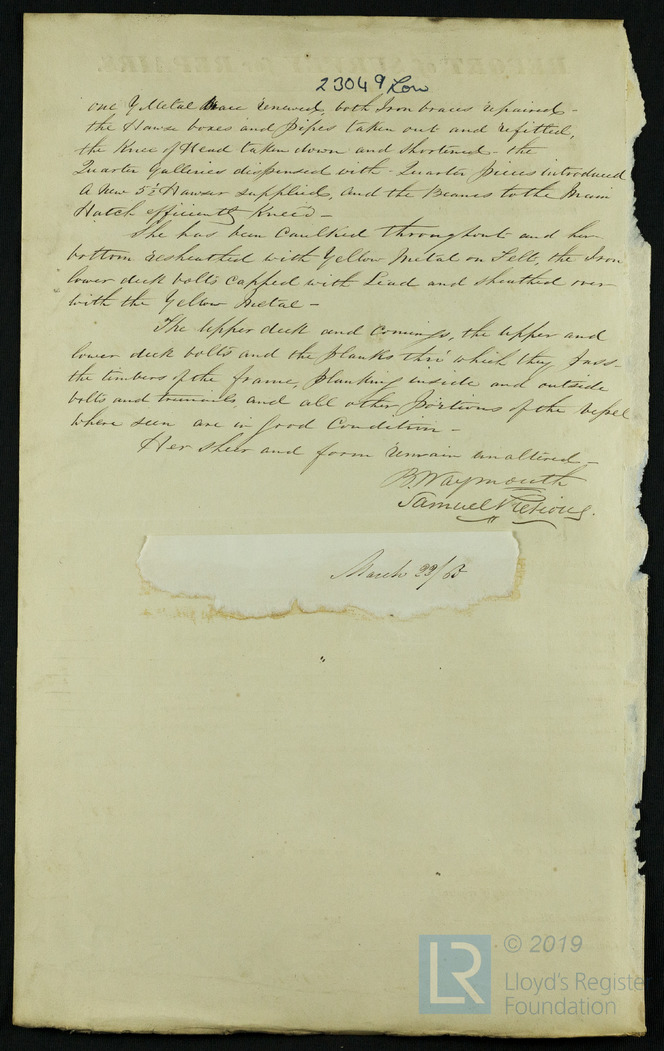 23049 Lon
one Y Metal Brace renewed, both Iron braces repaired -
the Hawse boxes and pipes taken out and refitted,
the Knee of Head taken down and shortened - the
Quarter Galleries dispensed with - Quarter pieces introduced
a New 5½ Hawser supplied, and the Beams to the Main
Hatch efficiently Knee'd -
She has been caulked throughout and her
bottom resheathed with Yellow Metal on Felt, the Iron
lower deck bolts capped with Lead and sheathed over
with the Yellow Metal -
The Upper deck and Comings, the Upper and
lower deck bolts and the planks thro' which they pass -
the timbers of the frame, planking inside and outside
bolts and treenails and all other portions of the vessel
where seen are in good Condition -
Her sheer and form remain unaltered -
B. Waymouth
Samuel Pretious.
March 23/65
LR © 2019
Lloyd's Register
Foundation